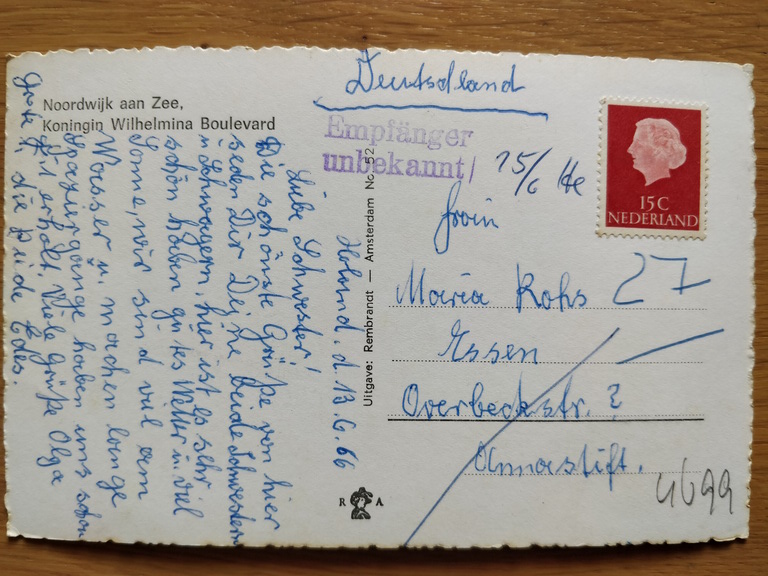 Noordwijk aan Zee,
Koningin Wilhelmina Boulevard
Holand. d 13.6.66
Liebe Schwester!
Die schönste Grüße von hier
seden Dir Deine beide Schwestern
u Schwagern, hier ist es sehr
schön haben gutes Wetter u. viel
Sonne, wir sind viel am
Wasser u. machen lange
Spaziergänge haben uns schon
gut erholt. Viele Grüße Olga
die
Uitgave: Rembrandt — Amsterdam No. 52
R A
Deutschland
Empfänger
unbekannt
15/6
15 C
NEDERLAND
Maria Rohs 27
Essen
Overbeckstr. 2
Annastift.
4699